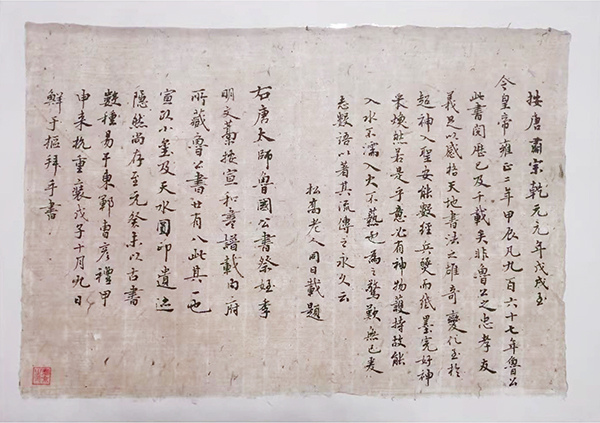 按唐肅宗乾元元年戊戌至
今皇帝雍正二年甲辰凡九百六十七年魯公
此書閱歷已及千載矣非魯公之忠孝友
義足以感格天地書法之雄奇變化至於
超神入聖安能數經兵燹而紙墨完好神
采煥然若是乎意必有神物護持故能
入水不濡入火不爇也為之驚歎無已爰
志數語以著其流傳之永久云
松喬老人同日載題
右唐太師魯國公書祭姪季
明文藁按宣和書譜載內府
所藏魯公書廿有八此其一也
宣政小璽及天水圓印遺跡
隱然尚存至元癸未以古書
數種易于東鄆曹彥禮甲
申來杭重裝戊子十月九日
鮮于樞拜手書